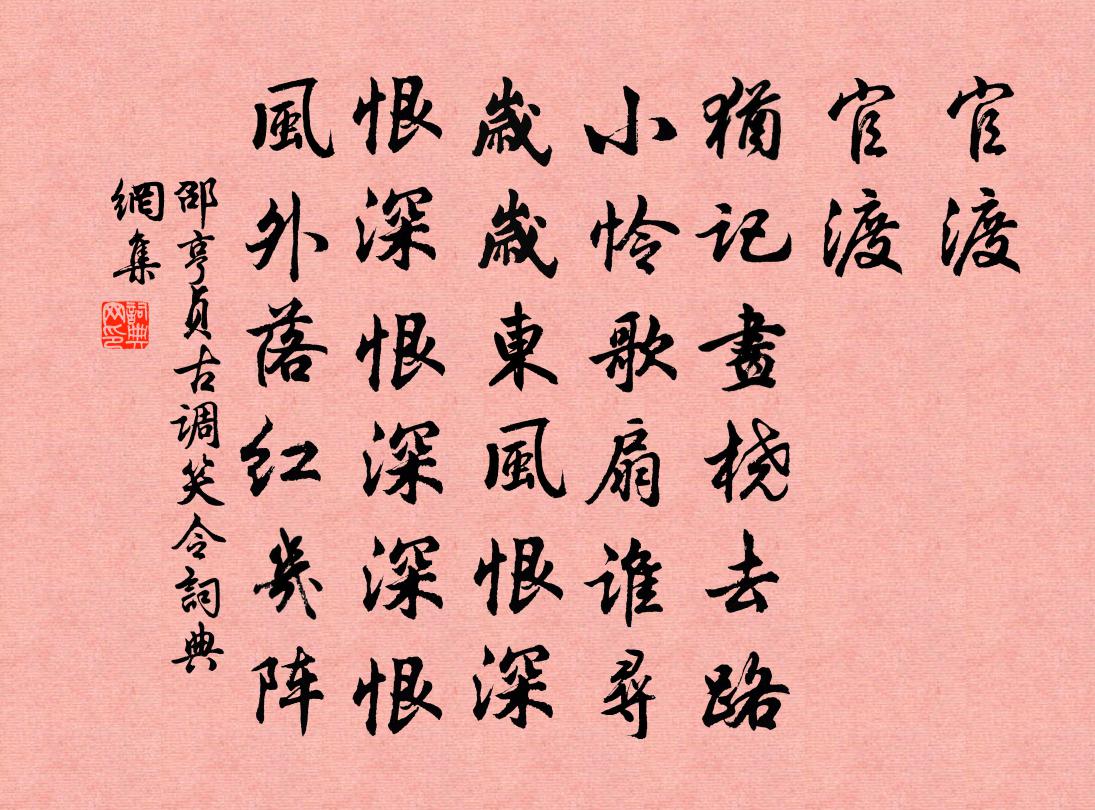 官渡
官渡
猶記畫桡去路
小怜歌扇誰尋
歲歲東風恨深
恨深恨深深恨
風外落红幾阵
邵亨貞古調笑令詞典
網集
詞典
网印